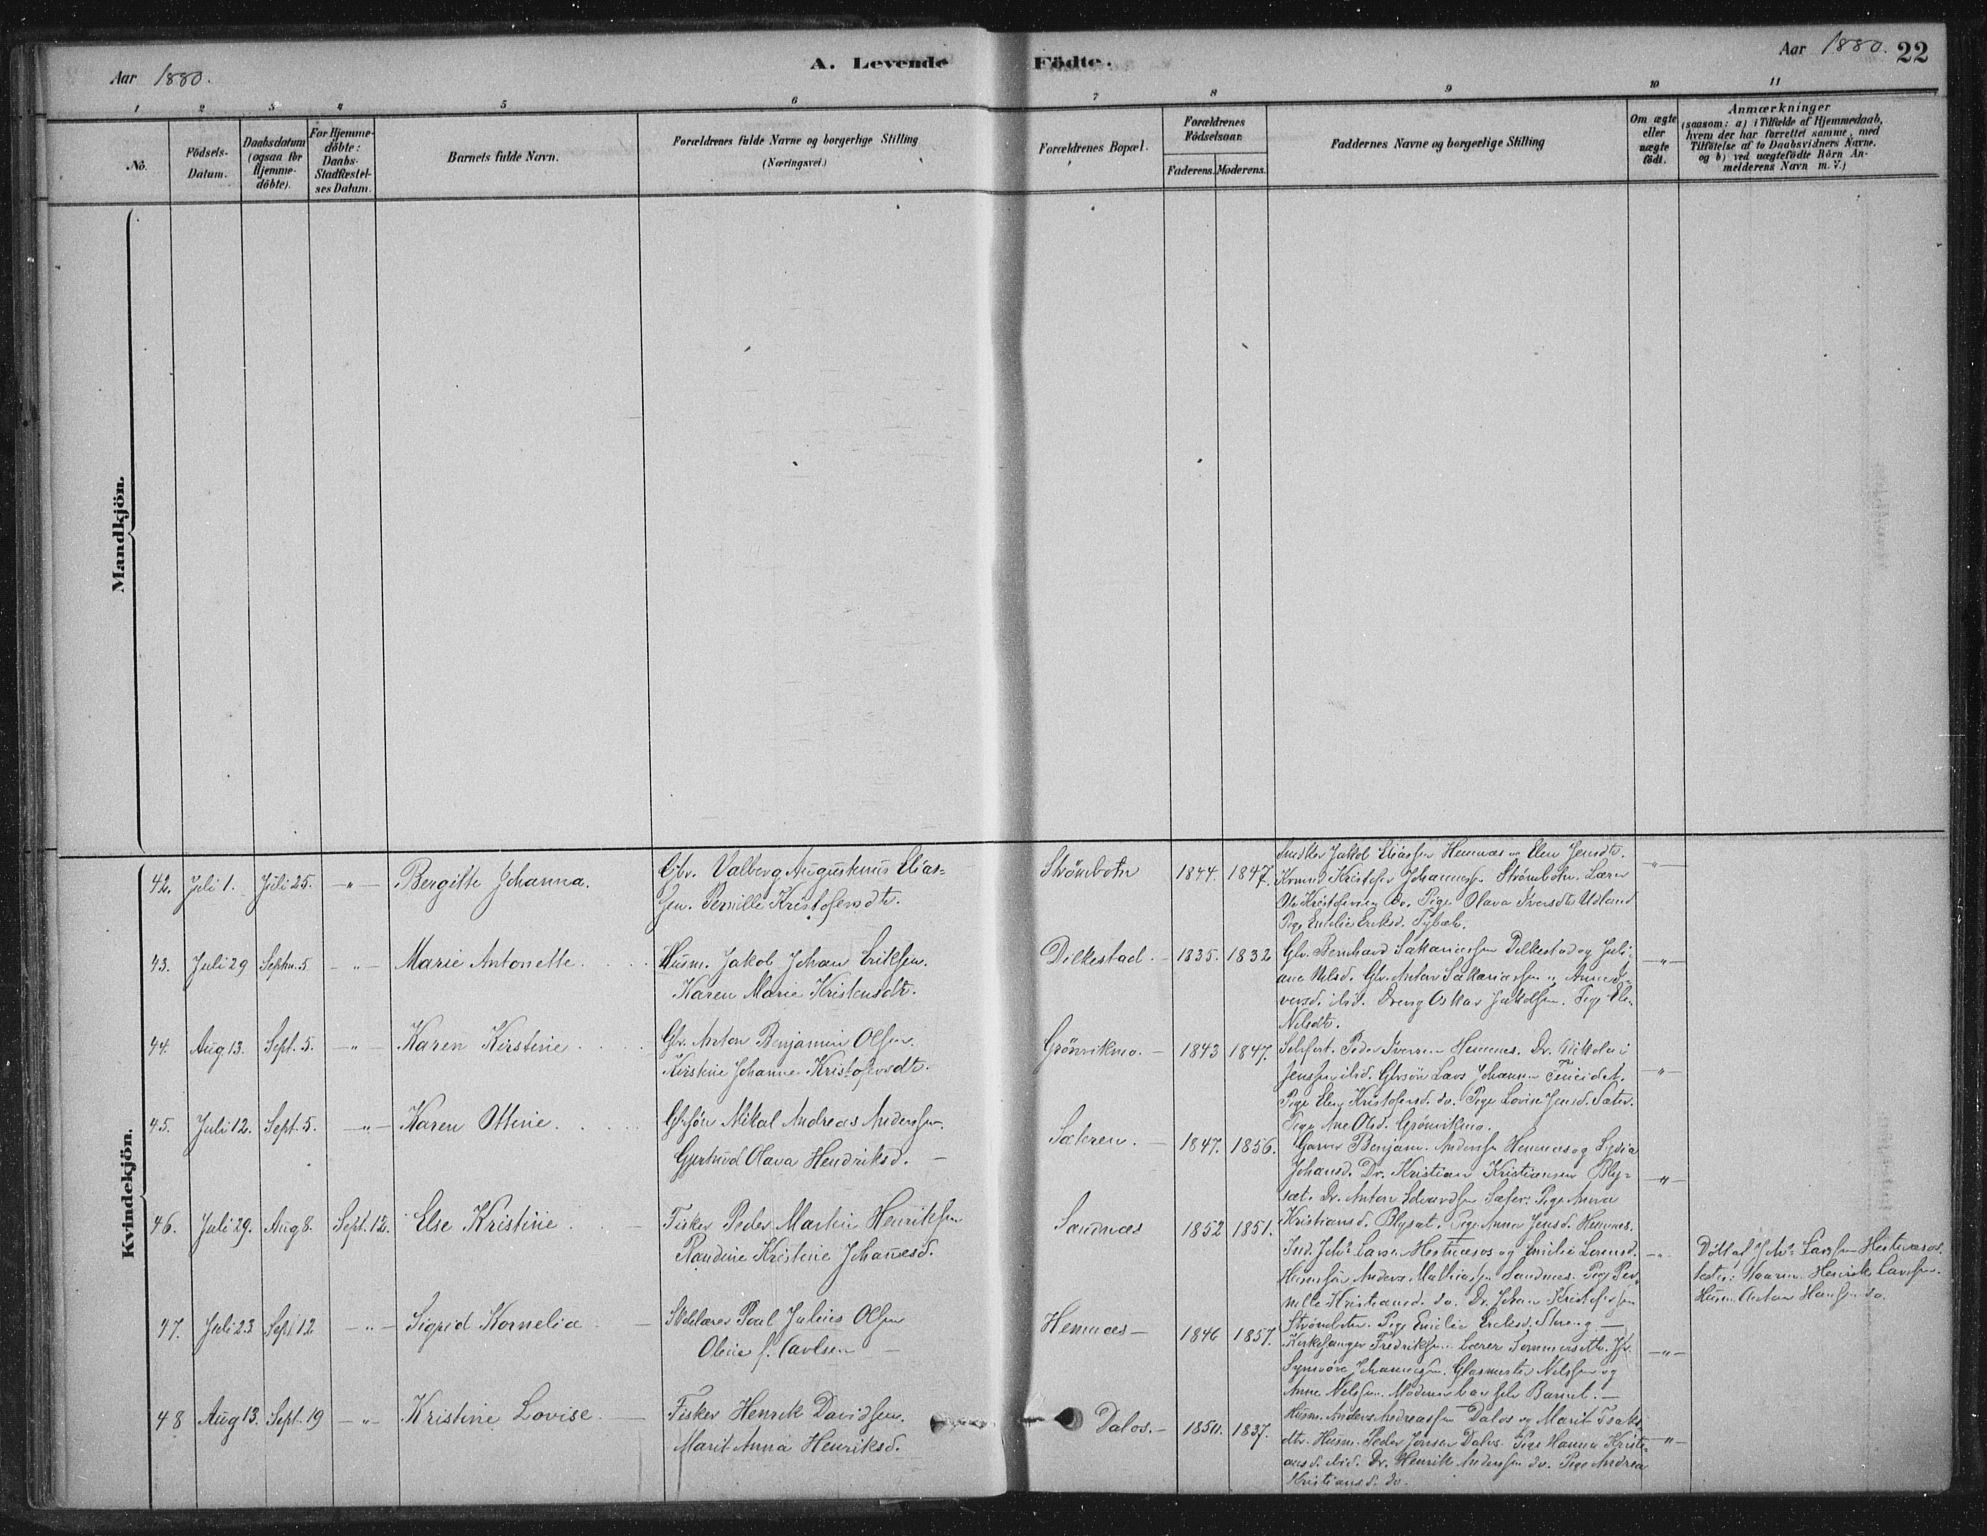 Aar 1880.
A. Levende Födte.
Aar 1880. 22
1 2 3 4 5 6 7 8 9 10 11
No.
Födsels-
Datum.
Daabsdatum
(ogsaa for
Hjemme-
döbte).
For Hjemme-
döbte:
Daabs-
Stadfæstel-
ses Datum.
Barnets fulde Navn.
Forældrenes fulde Navne og borgerlige Stilling
(Næringsvei.)
Forældrenes Bopæl.
Forældrenes
Födselsaar.
Faderens. Moderens.
Faddernes Navne og borgerlige Stilling
Om ægte
eller
uægte
födt.
Anmærkninger
(saasom: a) i Tilfælde af Hjemmedaab,
hvem der har forrettet samme, med
Tilföielse af to Daabsvidners Navne.
og b) ved uægtefödte Börn An-
melderens Navn m. V.)
Mandkjön.
Kvindekjön.
42. Juli 1. Juli 25. -"- Bergitte Johanna.
Gbr. Valberg Augustinus Elias-
sen. Pernille Kristofersdtr.
Strömbotn 1844. 1847.
Jakob Eliassen Hemnæs og Elen Jensdtr.
Kristofer Johannessen Strömbotn. Lærer
Ole Kristofersen do. Pige Olava Iversdtr
Pige Emilie Eriksd.
-"-
43. Juli 29 Septm. 5 -"- Marie Antonette
Husm. Jakob Johan Eriksen.
Karen Marie Kristensdtr.
Dilkestad. 1835. 1832
Gbr. Bernhard Sakariassen Dilkestad og Juli-
ane Nilsd. Gbr. Anton Sakariassen og Anne I-
versd. ibid. Dreng Oskar Jakobsen. Pige Elen
Nilsdtr.
-"-
44. Aug 13. Sept. 5. -"- Karen Kirstine
Gbr. Anton Benjamin Olsen.
Kirstine Johanne Kristofersdtr.
Grönvikmo. 1843 1847.
Peder Iversen Hemnes. Dr. Nikolai
Jenssen ibid. Gbrsön Lars Johansen
Pige Elen Kristofersd. do. Pige Lovise Jensd. Sæter.
Pige Ane Olsd. Grönvikmo.
-"-
45. Juli 12. Sept. 5. -"- Karen Ottine.
Gbrsön Mikal Andreas Andersen.
Gjertrud Olava Hendriksd.
Sæteren. 1847. 1856.
Garver Benjam. Andersen Hemnes og Lydia
Johansd. Dr. Kristian Kristiansen Bly-
sæt. Dr. Anton Edvardsen Sæter. Pige Anna
Kristiansd. Blysæt. Pige Anna Jensd. Hemnes.
-"-
46. Juli 29. Aug 8. Sept. 12. Else Kristine
Fisker Peder Martin Henriksen
Randine Kristine Johanesd.
Sandnæs 1852 1851.
Ind. Johs Larsen Hestnæsos og Emilie Larsd.
Anders Mathiassen Sandnes. Pige Per-
nille Kristiansd. do. Dr. Johan Kristofersen
Strömbotn. Pige Emilie Eriksd.
-"-
Döbt af Johs Larssen Hestnæsos.
Henrik Larssen.
Husm. Anton Hansen do.
47. Juli 23 Sept 12 -"- Sigrid Kornelia
Skolelærer Poul Julius Olsen
Oline f. Carlsen
Hemnæs 1846 1857.
Kirkesanger Fredriksen. Lærer Sommerseth.
Johannesen. Glasmester Nilssen og
Anne Nilssen. Moderen bar selv Barnet.
-"-
48 Aug 13. Sept. 19 -"- Kristine Lovise.
Fisker Henrik Davidsen.
Marit Anna Henriksd.
Dalos. 1837.
Husm. Anders Andreassen Dalos og Marit Isaks-
dtr. Husm. Peder Jonsen Dalos. Pige Hanna Kristi-
ansd. ibid. Dr. Henrik Andersen do. Pige Andrea
Kristiansd. do.
-"-